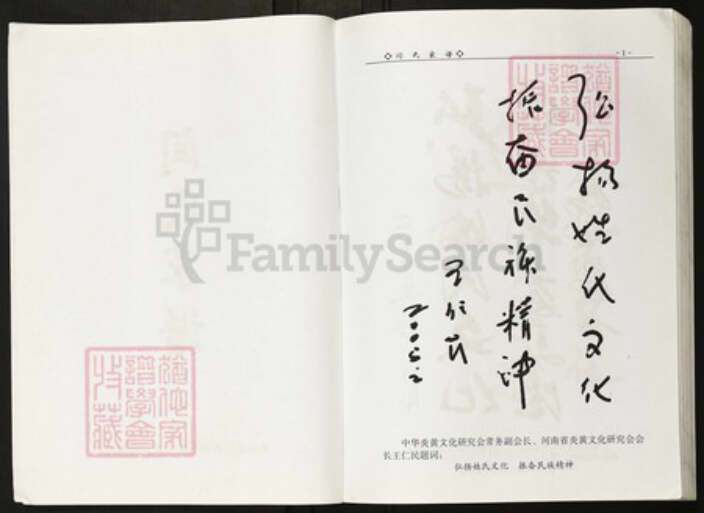 闫氏家谱
-1-
弘扬姓氏文化
振奋民族精神
王仁民
2005.2
中华炎黄文化研究会常务副会长、河南省炎黄文化研究会会
长王仁民题词:
弘扬姓氏文化 振奋民族精神
FamilySearch